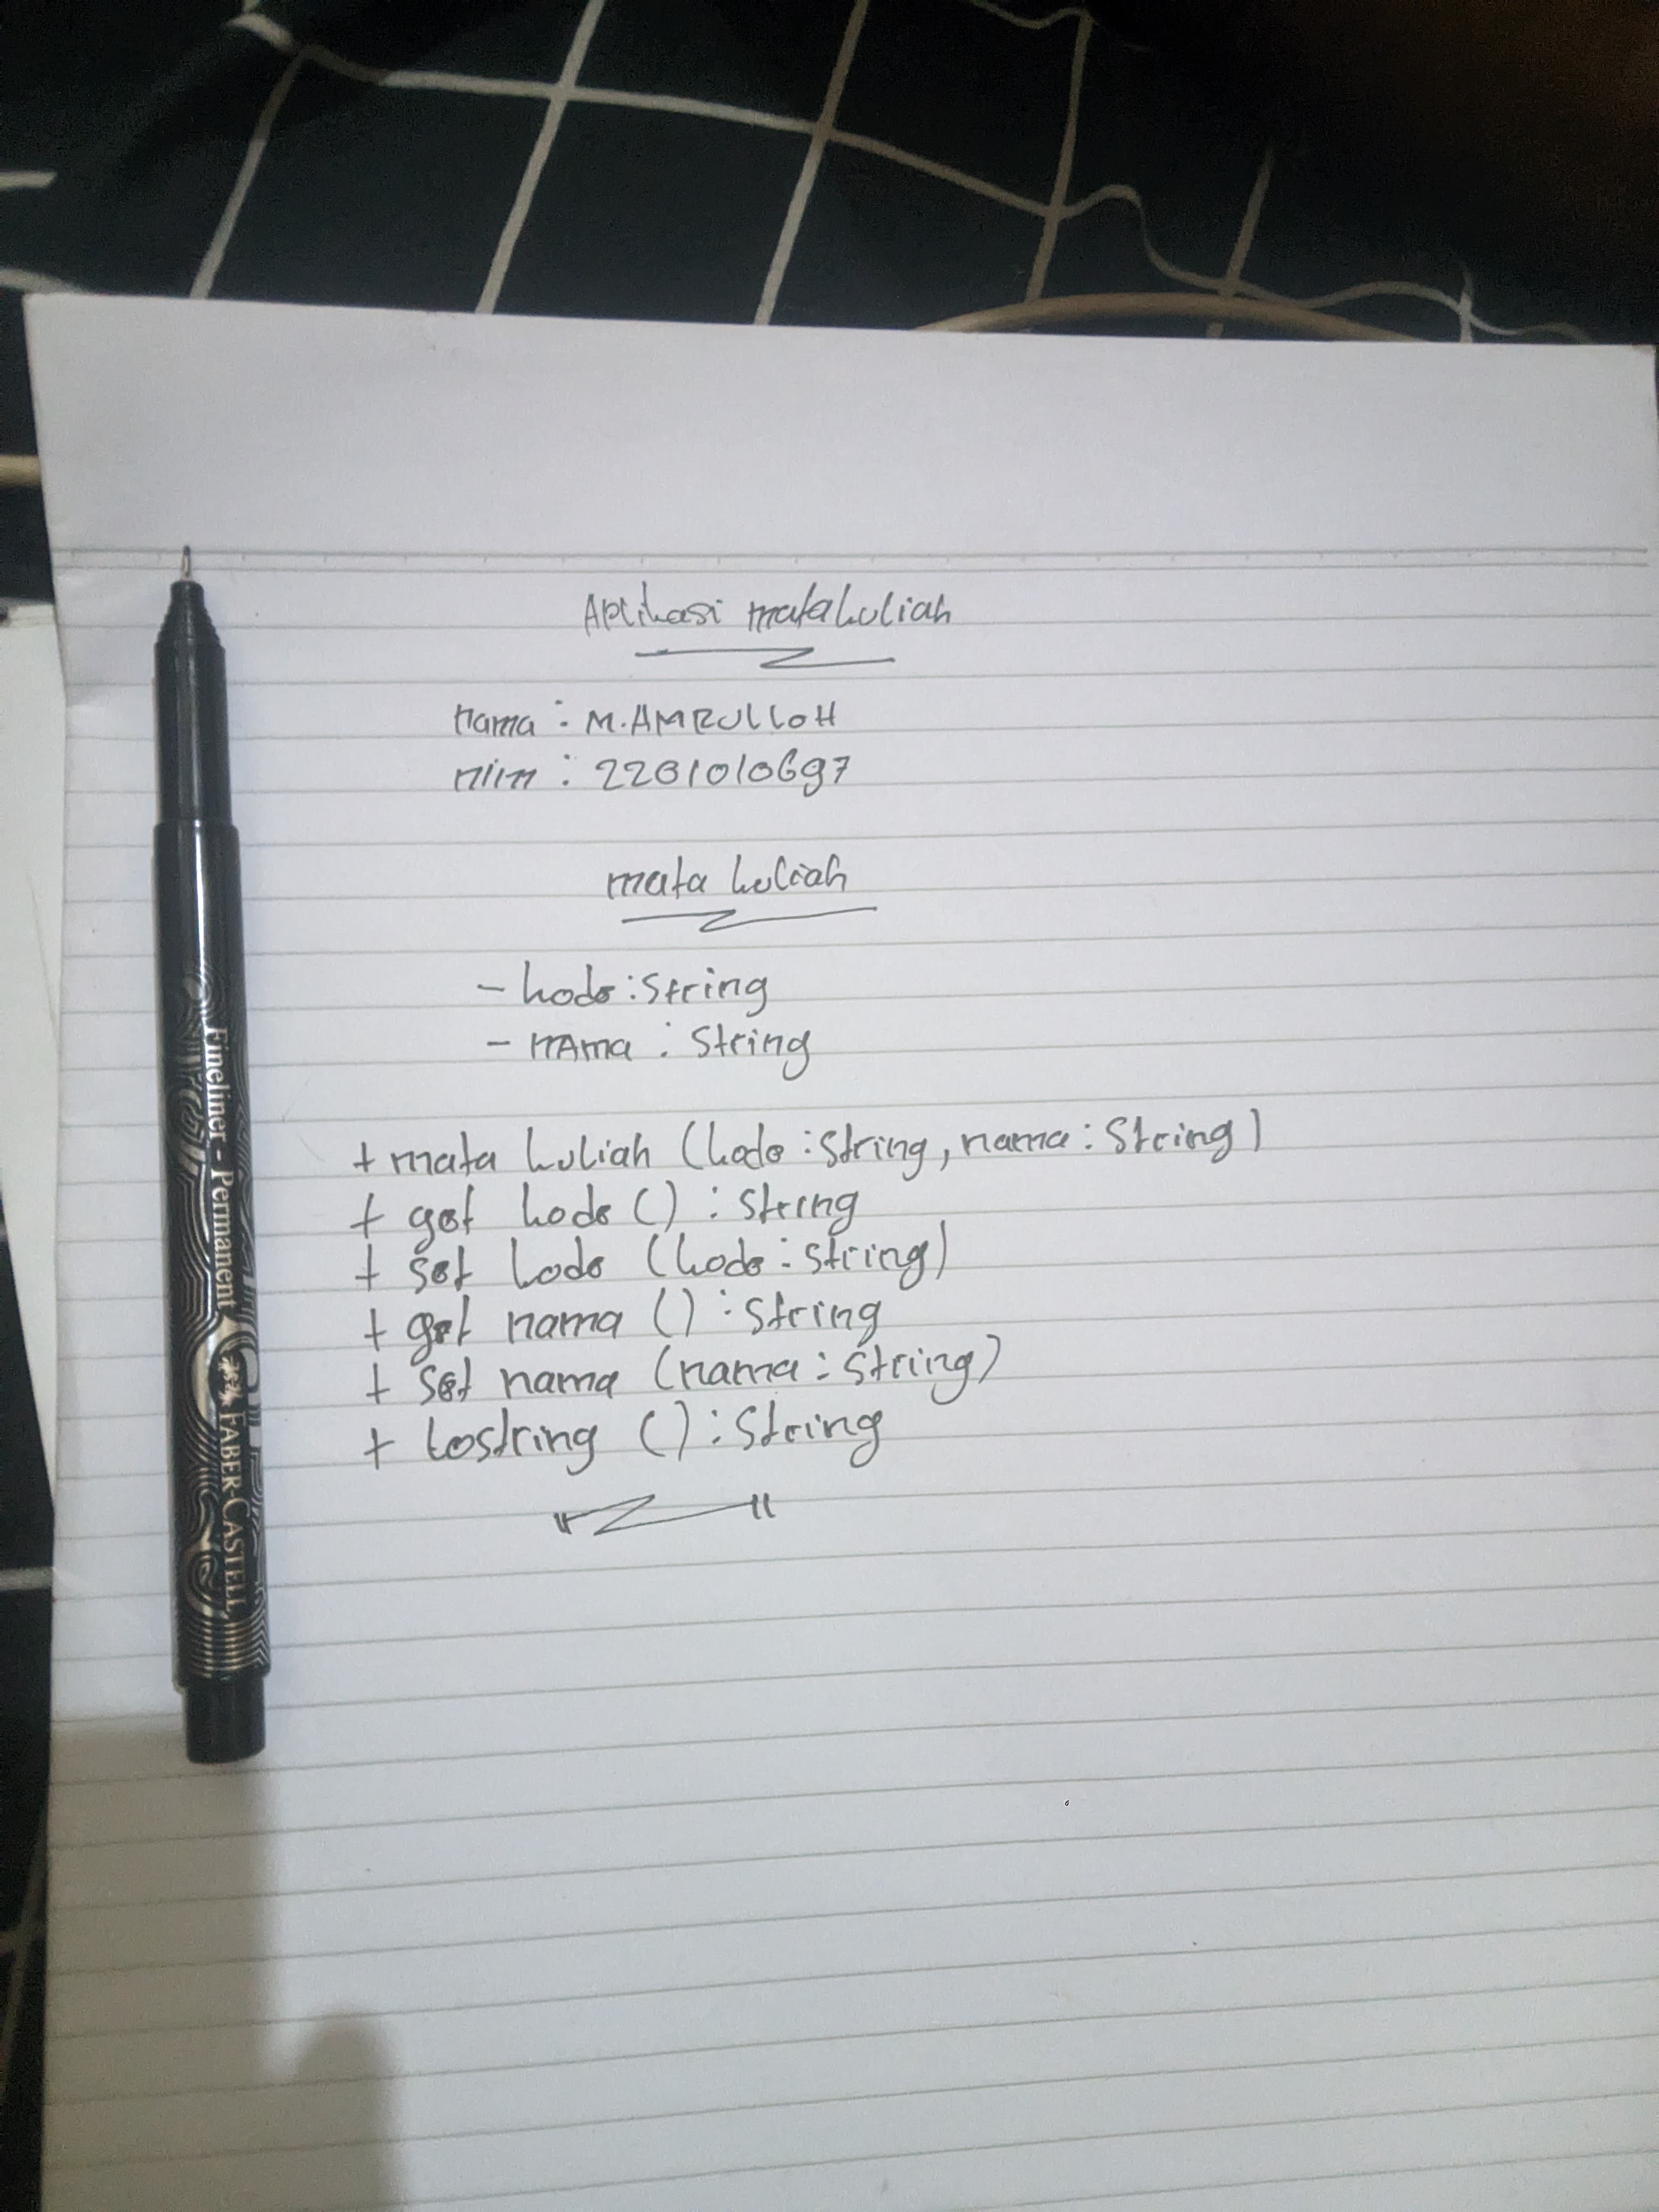 Aplikasi matakuliah
nama : M.AMRULLOH
nim : 2201010697
mata kuliah
- kode : String
- nama : String
+ mata kuliah (kode : String, nama : String)
+ get kode () : String
+ set kode (kode : String)
+ get nama () : String
+ set nama (nama : String)
+ tostring () : String
Fineliner - Permanent
FABER-CASTELL